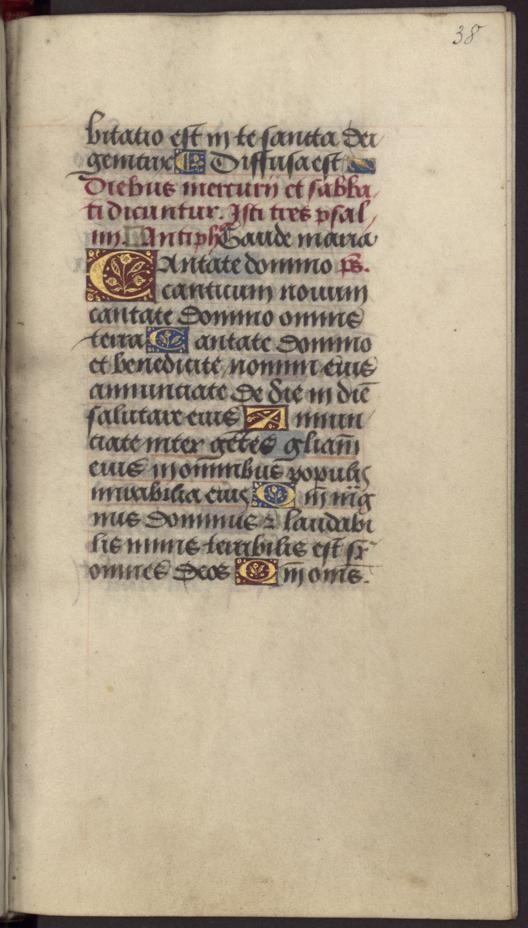 38
bitatio est in te sancta dei
genitrix Diffusa est
Diebus mercurii et sabba
ti dicuntur. Isti tres psal
mi. Antiph Gaude maria
Cantate domino ps.
canticum novum
cantate domino omnis
terra Cantate domino
et benedicite nomini eius
annunciate de die in diē
salutare eius Annun
ciate inter gētes gliam̄
eius in omnibus populis
mirabilia eius Qm̄ mag
nus dominus ⁊ laudabi
lis nimis terribilis est sr̄
omnes deos Qm̄ omēs.